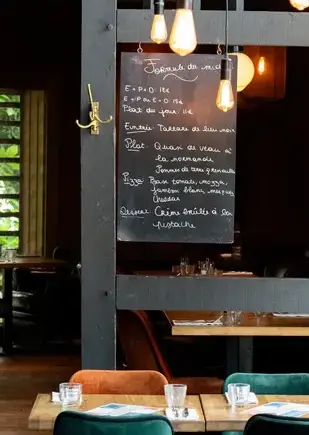 Formule du midi
E + P + D : 18€
E + P ou P + D : 15€
Plat du jour : 11€
Entrée : Tartare de lieu noir
Plat : Quasi de veau à
la normande
Pommes de terre grenailles
Pizza : Base tomate, mozza,
jambon blanc,
Cheddar
Dessert : Crème brûlée à la
pistache